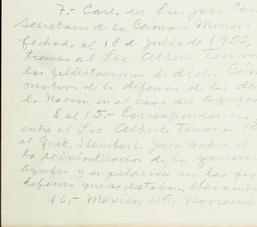 7.- Carta del Lic. José
Secretario de la Cámara Minera
fechada el 18 de julio de 1955,
al Lic. Alberto
las felicitaciones de dicha
motivo de la defensa de los
la Nación en el caso del azufre
8 al 15.- Correspondencia
entre el Lic. Alberto
el Gral. Heriberto Jara sobre
la reivindicación de
azufre y en relación con las
defensa que se estaban llevando
16.- México, D.F., Noviemb